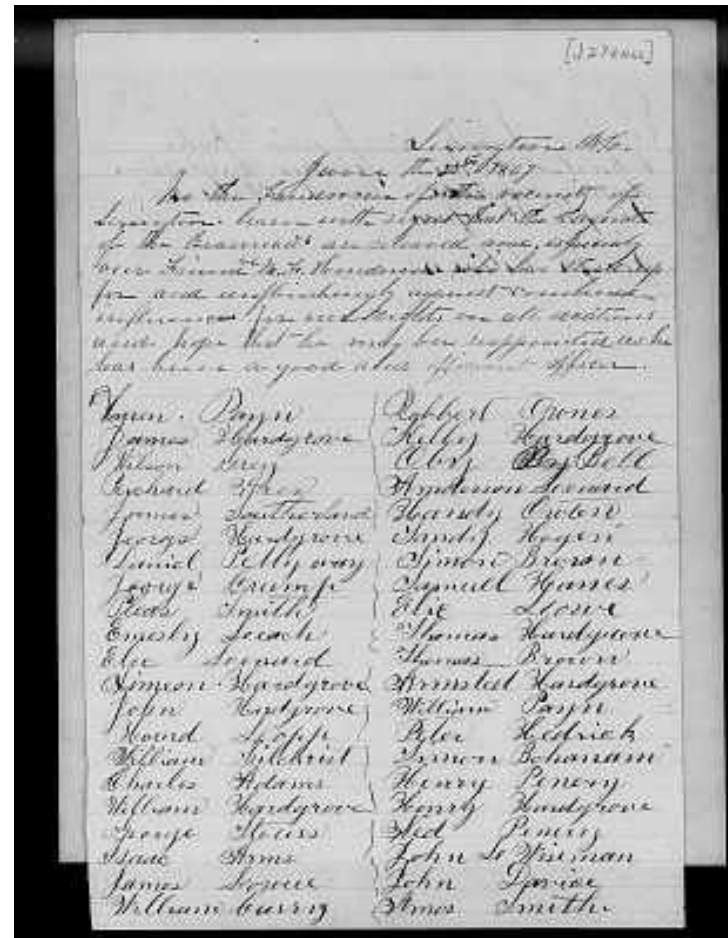 Lexington N.C.
June the 25th 1867
We the Freedmen of the vicinity of
Lexington learn with regret that the
of the are relieved and, especially
our Friend W. F. Henderson who has
for and unflinchingly against combined
influence for our Rights on all
and hope that he may be reappointed as he
has been a good and efficient officer.
Payn
James Hardgrove
Wilson Grey
Richard
James Southerland
George Hardgrove
Daniel Pettyway
George Crump
Pleas Smith
Leach
Elie Leonard
Simeon Hardgrove
John Hardgrove
Lopp
William Gilchrist
Charles Adams
William Hardgrove
George
Isaac Arms
James
William Curry
Robbert Jones
Kelly Hardgrove
Bell
Anderson Leonard
Handy Owen
Sandy Hogen
Simon Brown
Samuell Hanes
Lowe
Thomas Hardgrove
Thomas Brown
Armsted Hardgrove
William Payn
Peter Hedrick
Simon Bohanam
Henry Penery
Henry Hardgrove
Ned Penery
John L Wiseman
John Davise
Amos Smith